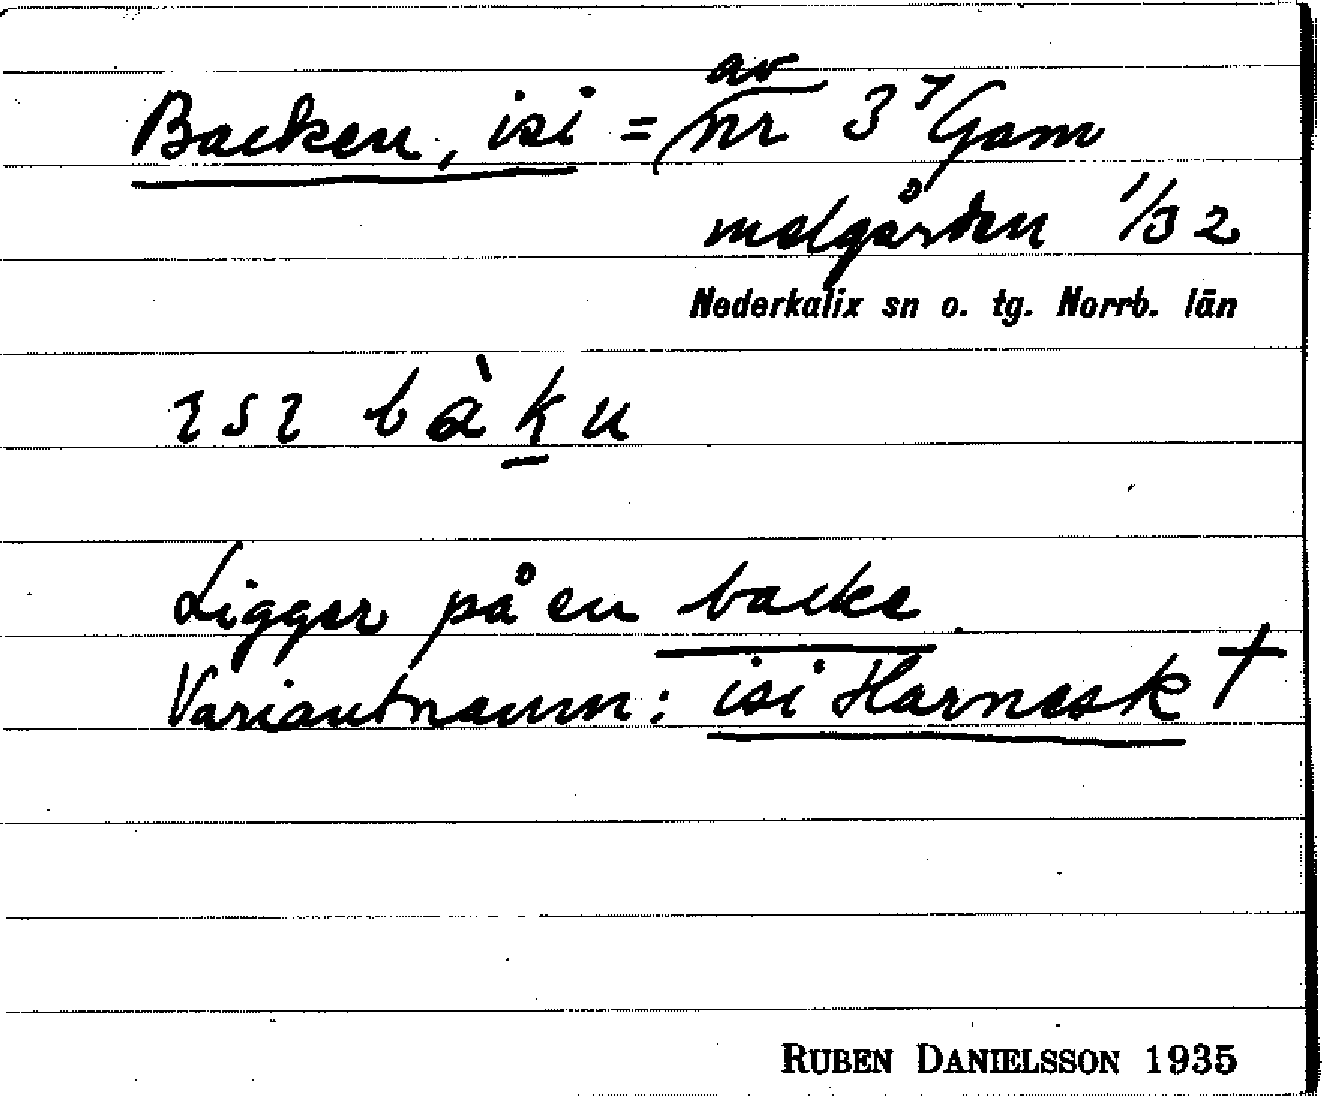 Backen, isi = av nr 3⁷ Gam
malgården 1/32
Nederkalix sn o. tg. Norrb. län
ɿsɿ bàk̲u
Ligger på en backe.
Variantnamn: isi Harnesk †
RUBEN DANIELSSON 1935